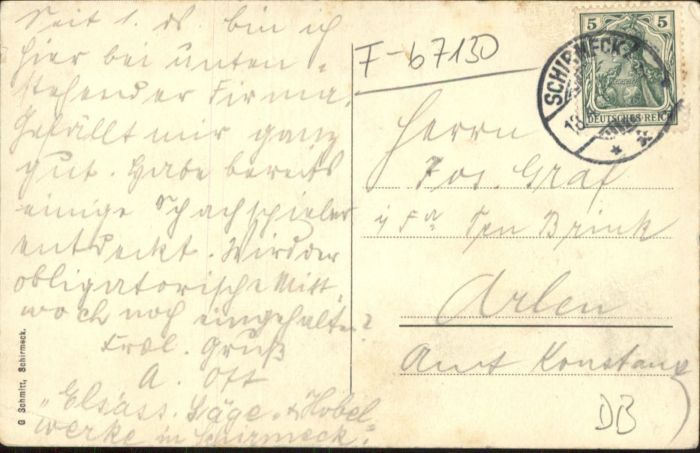 Seit 1. ds. bin ich
hier bei unten-
stehender Firma.
Gefällt mir ganz
gut. Habe bereits
einige Schachspieler
entdeckt. Wird der
obligatorische Mitt
woch noch eingehalten?
Frdl. Gruß
A. Ott
"Elsäss. Säge- & Hobel-
werke in Schirmeck."
G Schmitt, Schirmeck.
F-67130
5 5
DEUTSCHES REICH
SCHIRMECK
Herrn
Jos. Graf
i/ Fa Ten Brink
Arlen
Amt Konstanz
DB